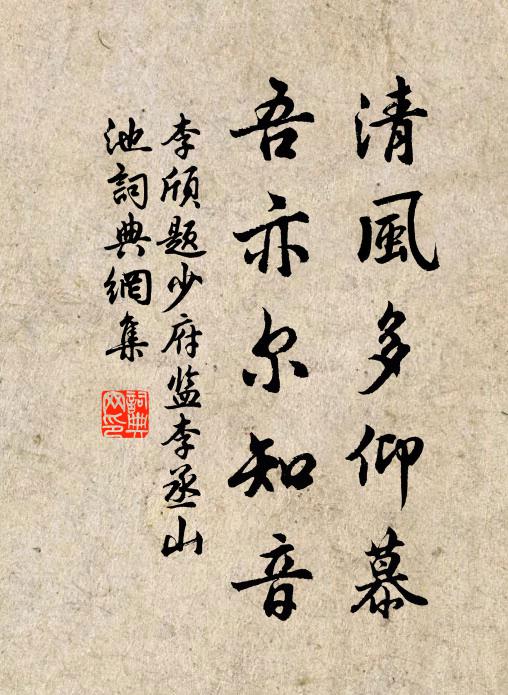 清風多仰慕
吾亦尔知音
李頎題少府监李丞山
池詞典網集
詞典
网印